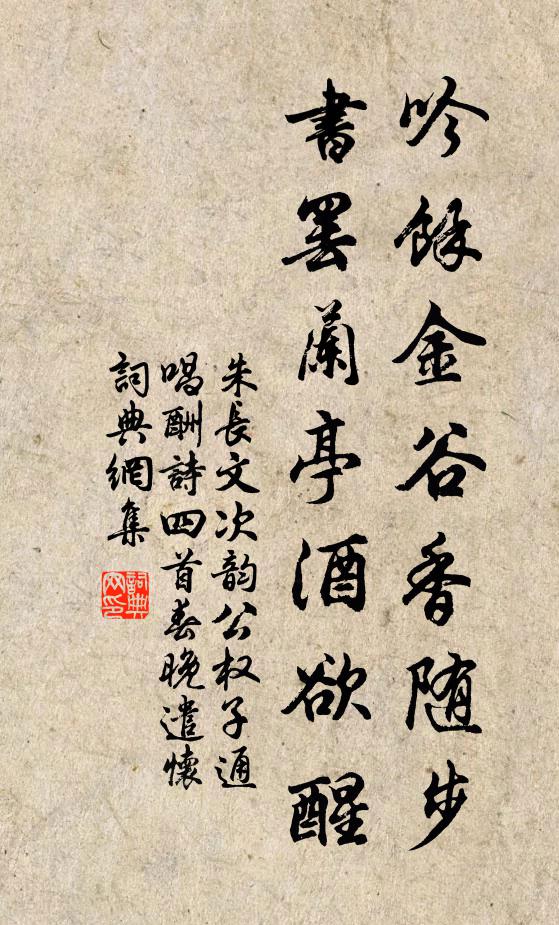 吟餘金谷香随步
書罷蘭亭酒欲醒
朱長文次韵公权子通
唱酬詩四首春晚遣懷
詞典網集
詞典
网印